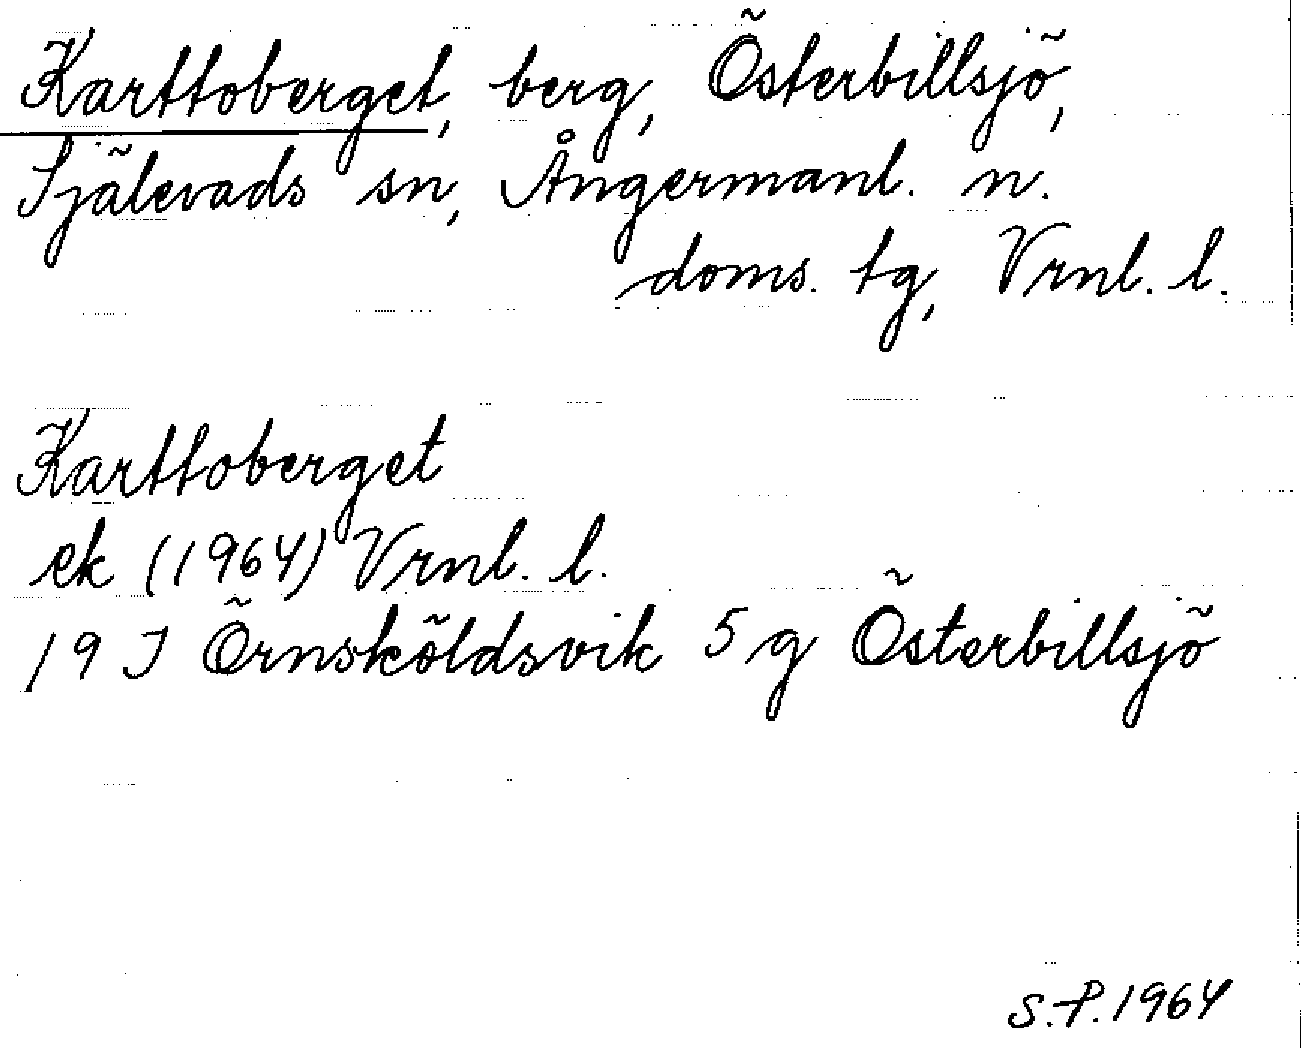 Karttoberget, berg, Österbillsjö,
Själevads sn, Ångermanl. n.
doms. tg, Vrnl. l.
Karttoberget
ek (1964) Vrnl. l.
19 J Örnsköldsvik 5 g Österbillsjö
S.P. 1964